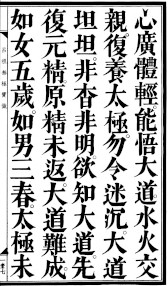 心廣體輕能悟大道水火交
親復養太極勿令迷沉大道
坦坦非杳非明欲知大道先
復元精原精未返大道難成
如女五歲如男三春太極未